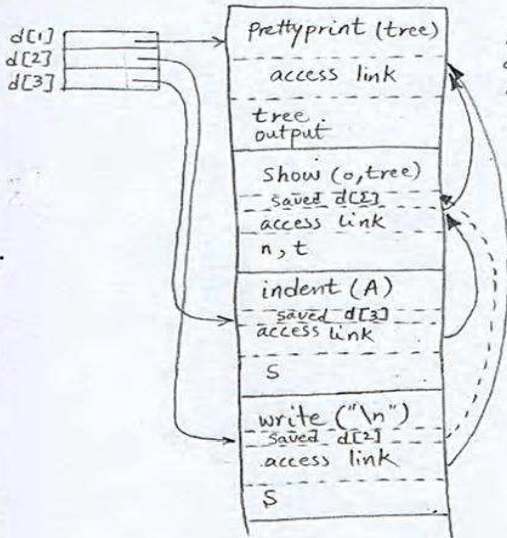 d[1]
d[2]
d[3]
Prettyprint (tree)
access link
tree
output
Show (0,tree)
saved d[2]
access link
n, t
indent (A)
saved d[3]
access link
S
write ("\n")
saved d[2]
access link
S